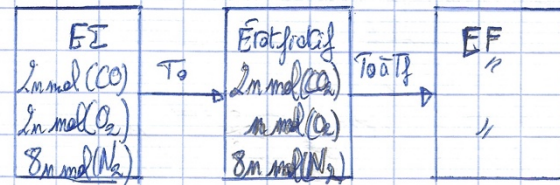 EI
2n mol (CO)
2n mol (O₂)
8n mol (N₂)
T₀
État fictif
2n mol (CO₂)
n mol (O₂)
8n mol (N₂)
T₀ à Tf
EF
"
"